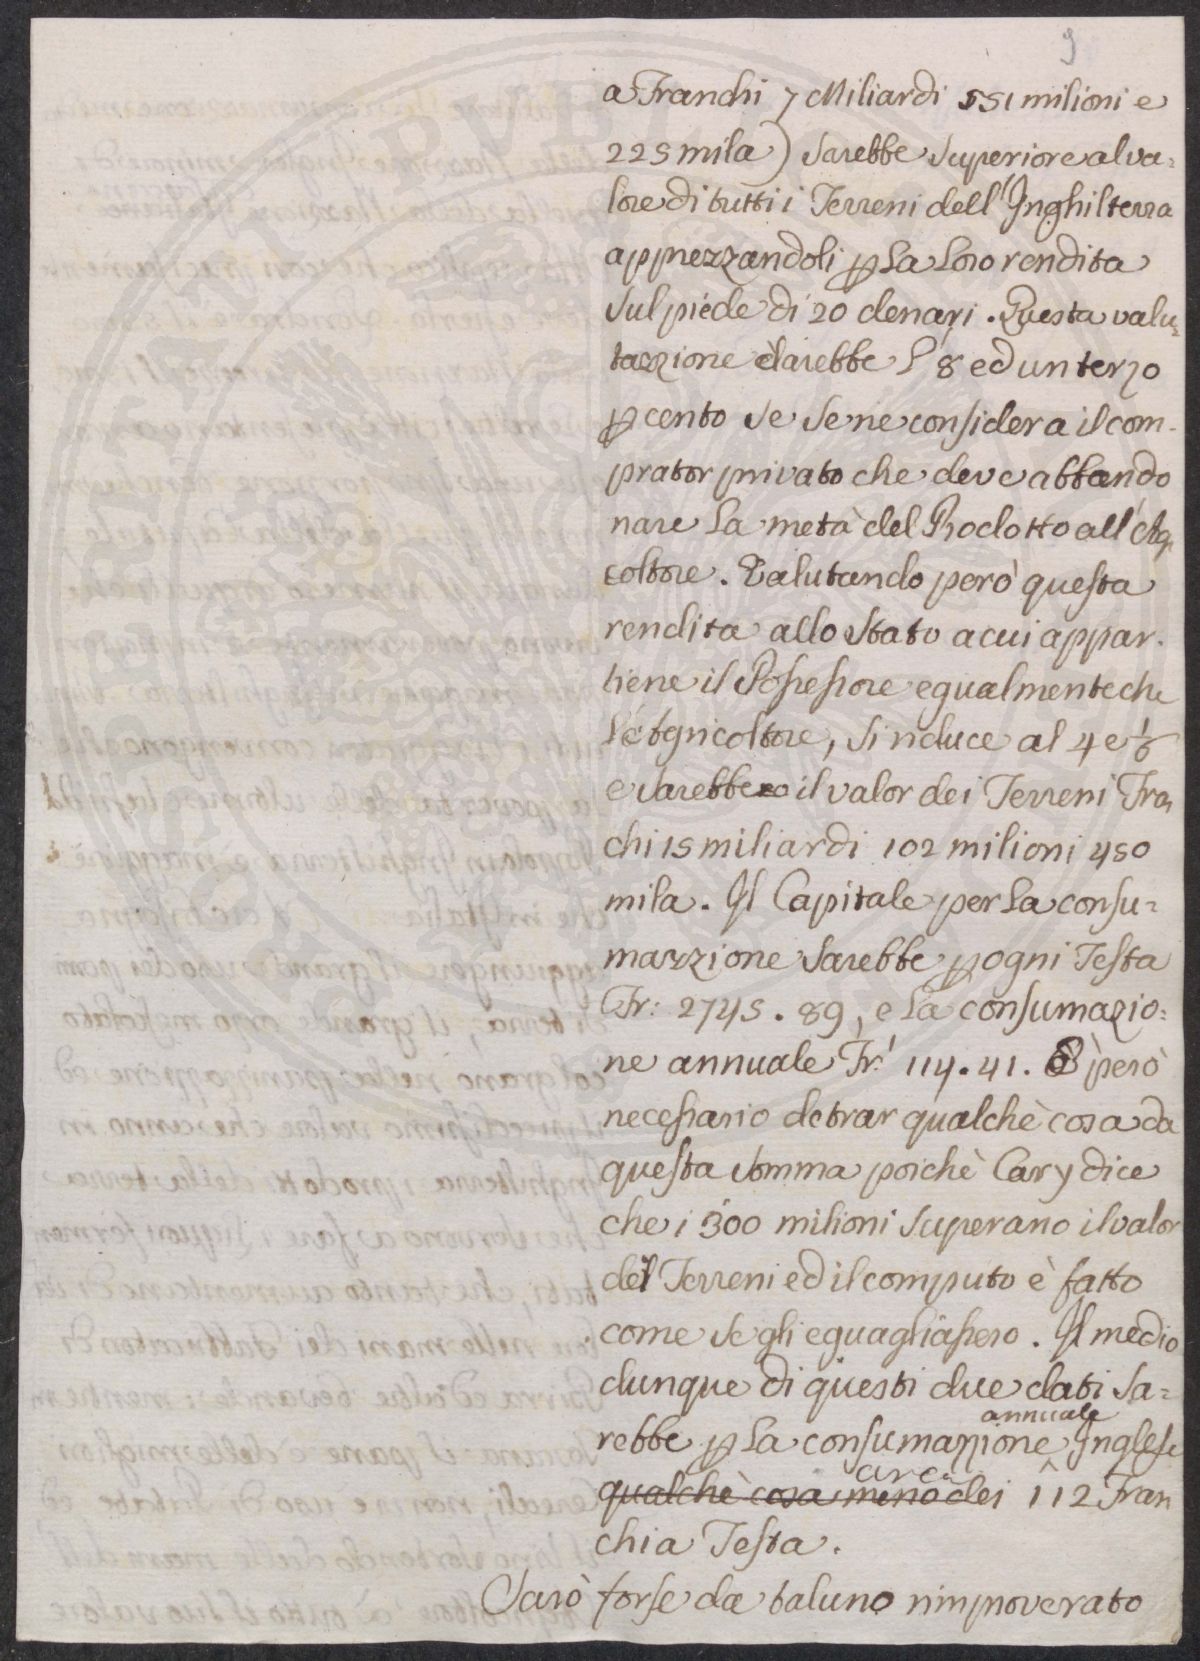 9
a Franchi 7 Miliardi 551 milioni e
225 mila) sarebbe superiore al va=
lore di tutti i Terreni dell'Inghilterra
apprezzandoli p la loro rendita
sul piede di 20 denari. Questa valu=
tazzione darebbe l'8 ed un terzo
p cento se se ne considera il com-
prator privato che deve abbando
nare la metà del Prodotto all'Ag.
coltore. Valutando però questa
rendita allo Stato a cui appar-
tiene il Possessore egualmente che
l'Agricoltore, si riduce al 4 e 1/6
e sarebbe il valor dei Terreni Fran
chi 15 miliardi 102 milioni 450
mila. Il Capitale per la consu=
mazzione sarebbe p ogni Testa
Fr: 2745.89, e la consumazio=
ne annuale Fr! 114.41. È però
necessario detrar qualchè cosa da
questa somma poichè Cary dice
che i 300 milioni superano il valor
dei Terreni ed il computo è fatto
come se gli eguagliassero. Il medio
dunque di questi due dati sa=
annuale
rebbe p la consumazzione Inglese
circa
qualchè cosa meno dei 112 Fran
chi a Testa.
Sarò forse da taluno rimproverato